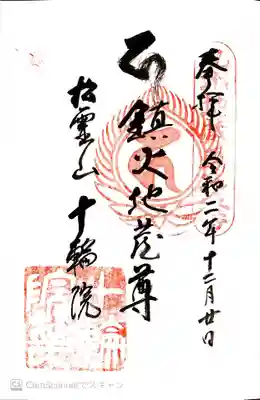 奉拝 令和二年十二月廿日
鎮火地蔵尊
拾靈山 十輪院
CamScannerでスキャン